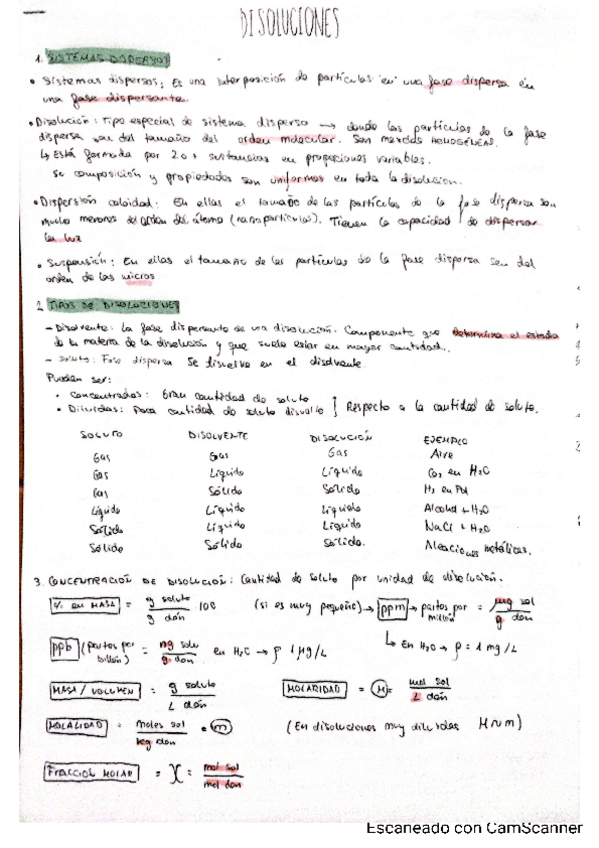 DISOLUCIONES
1. SISTEMAS DISPERSOS
• Sistemas dispersos; Es una interposición de partículas en una fase dispersa en
una fase dispersante
• Disolución: Tipo especial de sistema disperso → donde las partículas de la fase
dispersa son del tamaño del orden molecular. Son mezclas HOMOGÉNEAS.
↳ Está formada por 2 o + sustancias en proporciones variables.
Se composición y propiedades son uniformes en toda la disolución.
• Dispersión coloidal: En ellas el tamaño de las partículas de la fase dispersa son
mucho menores del orden del átomo (nanopartículas). Tienen la capacidad de dispersar
la luz
• Suspensión: En ellas el tamaño de las partículas de la fase dispersa son del
orden de las micras
2. TIPOS DE DISOLUCIONES
- Disolvente: La fase dispersante de una disolución. Componente que determina el estado
de la materia de la disolución y que suele estar en mayor cantidad.
- Soluto: Fase dispersa Se disuelve en el disolvente.
Pueden ser:
• Concentradas: Gran cantidad de soluto
• Diluidas: Poca cantidad de soluto disuelto } Respecto a la cantidad de soluto.
SOLUTO DISOLVENTE DISOLUCIÓN EJEMPLO
Gas Gas Gas Aire
Gas Líquido Líquido CO₂ en H₂O
Gas Sólido Sólido H₂ en Pd
Líquido Líquido Líquido Alcohol + H₂O
Sólido Líquido Líquido NaCl + H₂O
Sólido Sólido Sólido. Aleaciones metálicas.
3. CONCENTRACIÓN DE DISOLUCIÓN: Cantidad de soluto por unidad de disolución.
% en MASA = g soluto / g dón 100 (si es muy pequeño) → ppm → partes por millón = μg sol / g dón
ppb (partes por billón) = ng solu / g dón en H₂O → ρ 1 μg/L ↳ En H₂O → ρ = 1 mg/L
MASA / VOLUMEN = g soluto / L dón MOLARIDAD = M = mol sol / L dón
MOLALIDAD = moles sol / kg don = m (En disoluciones muy diluidas M ∼ m)
FRACCIÓN MOLAR = X = mol sol / mol don
Escaneado con CamScanner